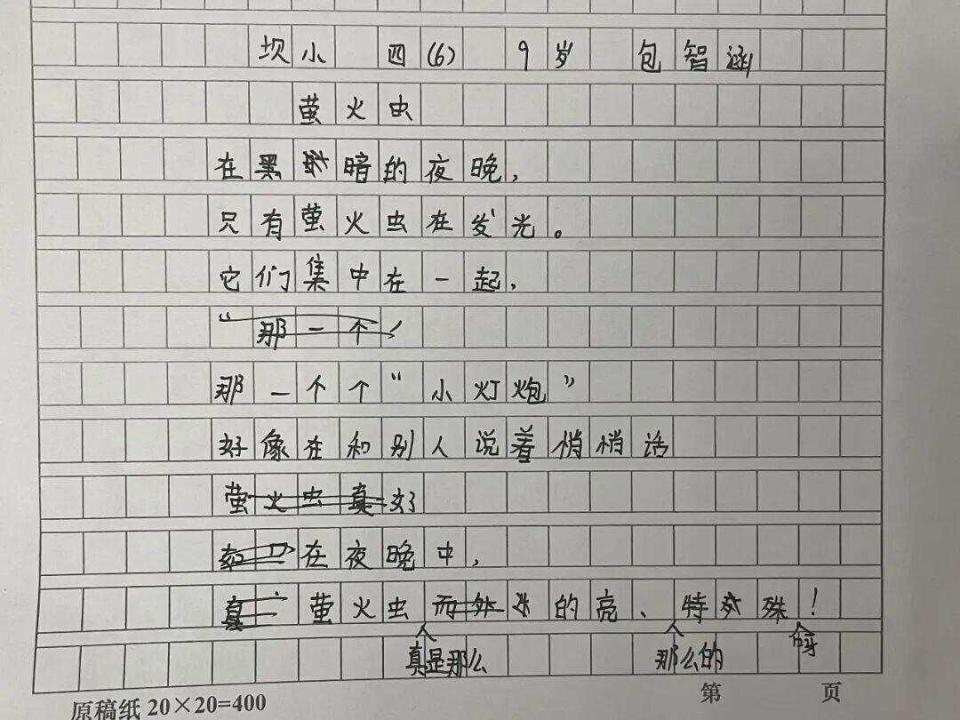 坝小 四(6) 9岁 包智涵
萤火虫
在黑暗的夜晚,
只有萤火虫在发光。
它们集中在一起,
“那一个
那一个个“小灯炮”
好像在和别人说着悄悄话
萤火虫真好
在夜晚中,
真 萤火虫 的亮、特殊!
真是那么 那么的
原稿纸 20×20=400 第 页